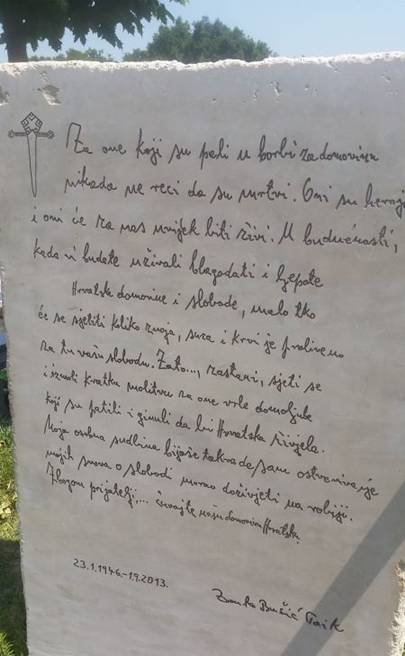 Za one koji su pali u borbi za domovinu
nikada ne reci da su mrtvi. Oni su heroji
i oni će za nas uvijek biti živi. U budućnosti,
kada vi budete uživali blagodati i ljepote
Hrvatske domovine i slobode, malo tko
će se sjetiti koliko znoja, suza i krvi je proliveno
za tu vašu slobodu. Zato..., zastani, sjeti se
i izmoli kratku molitvu za one vrle domoljube
koji su patili i ginuli da bi Hrvatska živjela.
Moja osobna sudbina bijaše takva da sam ostvarivanje
mojih snova o slobodi morao doživjeti na robiji.
Zbogom prijatelji,... čuvajte našu domovinu Hrvatsku.
23.1.1946.-1.9.2013.
Zvonko Bušić Taik